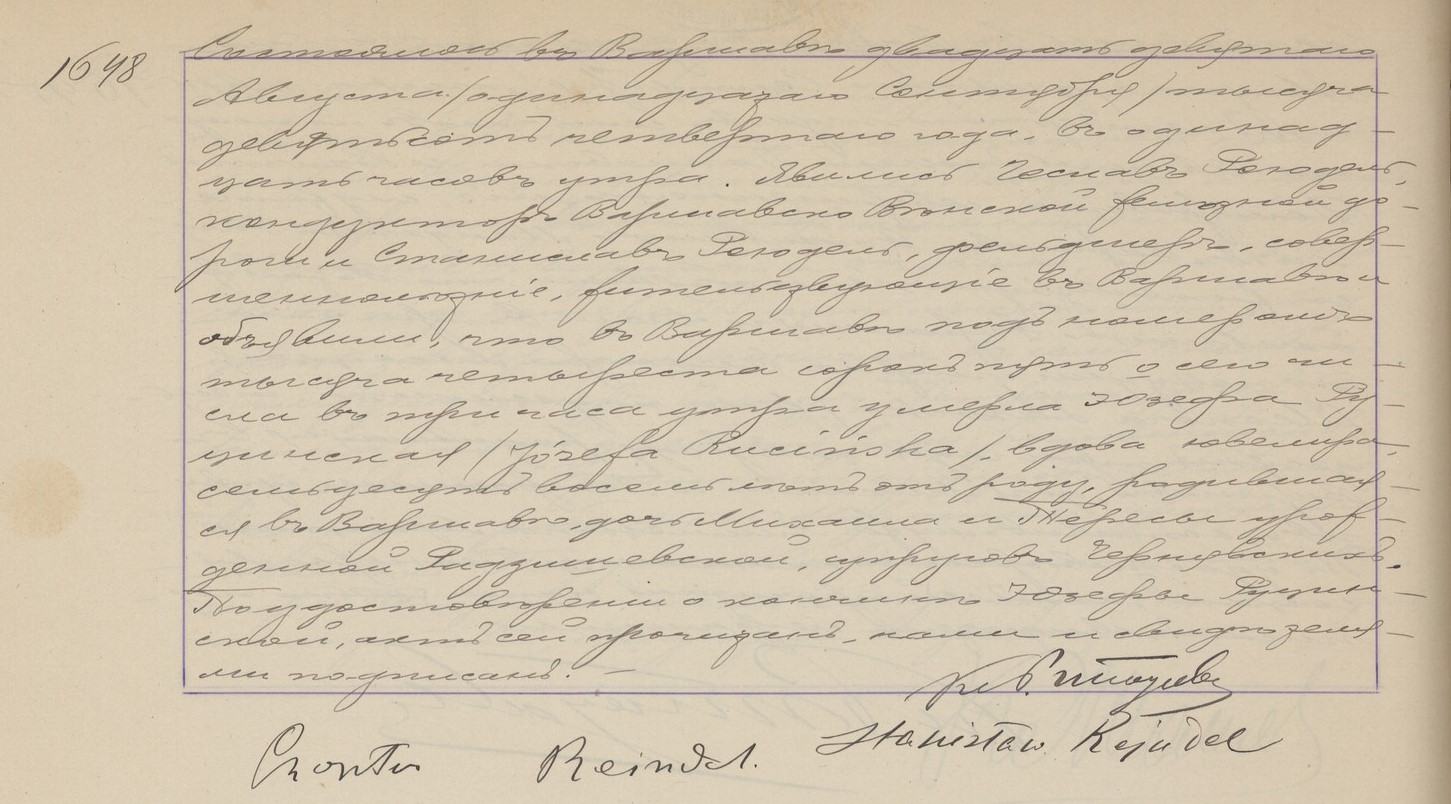 1648
Состоялось въ Варшавѣ двадцать девятаго
Августа /одинадцатаго Сентября/ тысяча
девятьсотъ четвертаго года, въ одинад-
цать часовъ утра. Явились Чеславъ Рейдель,
кондукторъ Варшавско Вѣнской желѣзной до-
роги и Станиславъ Рейдель, фельдшеръ, совер-
шеннолѣтніе, жительствующіе въ Варшавѣ и
объявили, что въ Варшавѣ подъ номеромъ
тысяча четыреста сорокъ пять о сего чи-
сла въ три часа утра умерла Юзефа Ру-
цинская /Józefa Rucińska/, вдова ювелира,
семьдесятъ восемь лѣтъ отъ роду, родившая-
ся въ Варшавѣ, дочь Михаила и Тересы урож-
денной Радзишевской, супруговъ Чернявскихъ.
По удостовѣреніи о кончинѣ Юзефы Руцин-
ской, актъ сей прочитанъ, нами и свидѣтеля-
ми подписанъ. —
Stanisław Rejndel
Reindel.